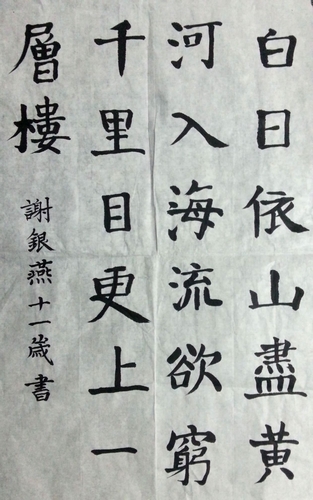 白日依山盡黃
河入海流欲窮
千里目更上一
層樓
謝銀燕十一歲書